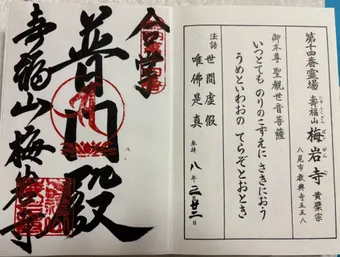 第十四番霊場
壽福山 梅岩寺 黄檗宗
じゅふくざん ばいがんじ
八尾市教興寺五五八
御本尊 聖觀世音菩薩
いつとても のりのこずえに さきにおう
うめといわおの てらぞとおとき
法語 世間虚假
唯佛是真
奉拝 八年 二月廿二日
合掌
普門殿
寿福山梅岩寺